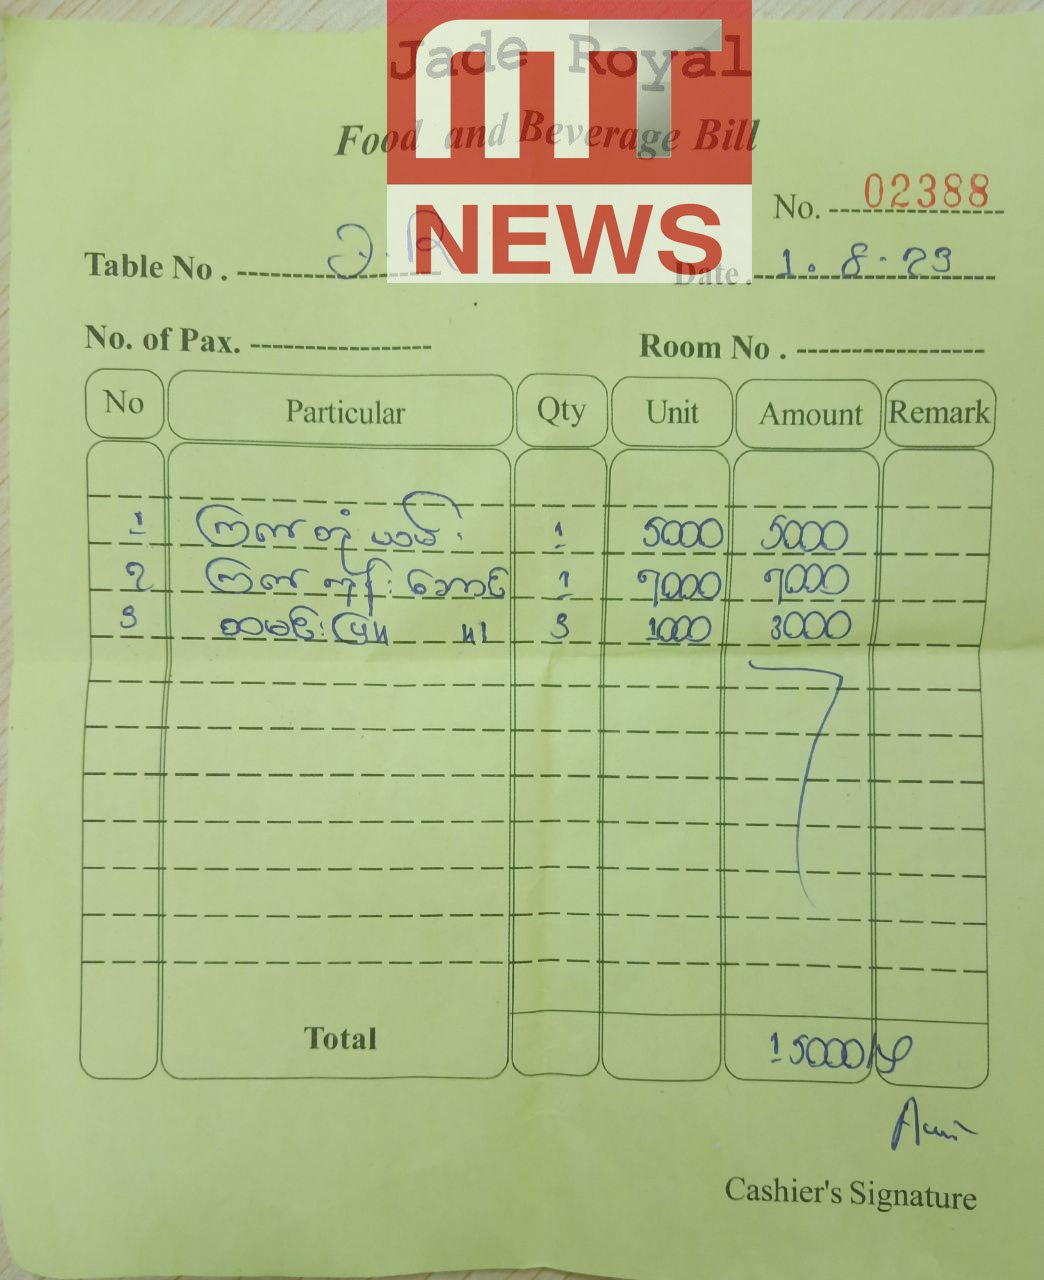 Jade Royal
MT NEWS
Food and Beverage Bill
No. 02388
Table No. J.R
Date. 1.8.23
No. of Pax.
Room No.
No Particular Qty Unit Amount Remark
1 ကြက် တုံယမ်း 1 5000 5000
2 ကြက် ကုန်းဘောင် 1 7000 7000
3 ထမင်းဖြူ 3 1000 3000
Total 15000/
Cashier's Signature